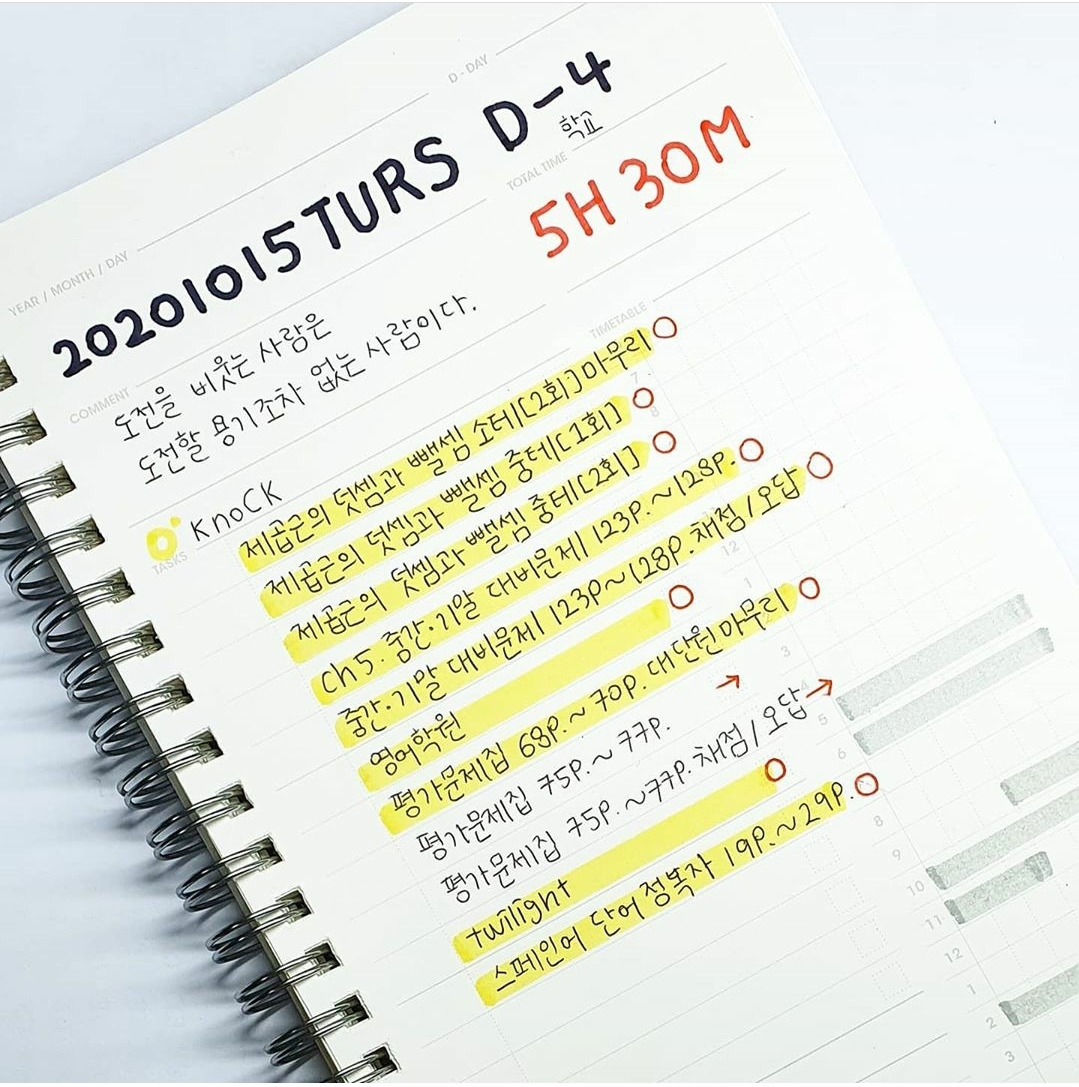 D-DAY
YEAR / MONTH / DAY
20201015TURS D-4
학교
TOTAL TIME
5H 30M
COMMENT
도전을 비웃는 사람은
도전할 용기조차 없는 사람이다.
TIMETABLE
KnoCK
TASKS
제곱근의 덧셈과 뺄셈 소테[2회] 마무리
제곱근의 덧셈과 뺄셈 중테[1회]
제곱근의 덧셈과 뺄셈 중테[2회]
Ch 5. 중간·기말 대비문제 123p.~128p.
중간·기말 대비문제 123p~128p. 채점/오답
영어학원
평가문제집 68p.~70p. 대단원 마무리
평가문제집 75p.~77p. →
평가문제집 75p.~77p. 채점/오답 →
twilight
스페인어 단어 정복자 19p.~29p.
7
8
12
1
3
5
6
8
9
10
11
12
1
2
3